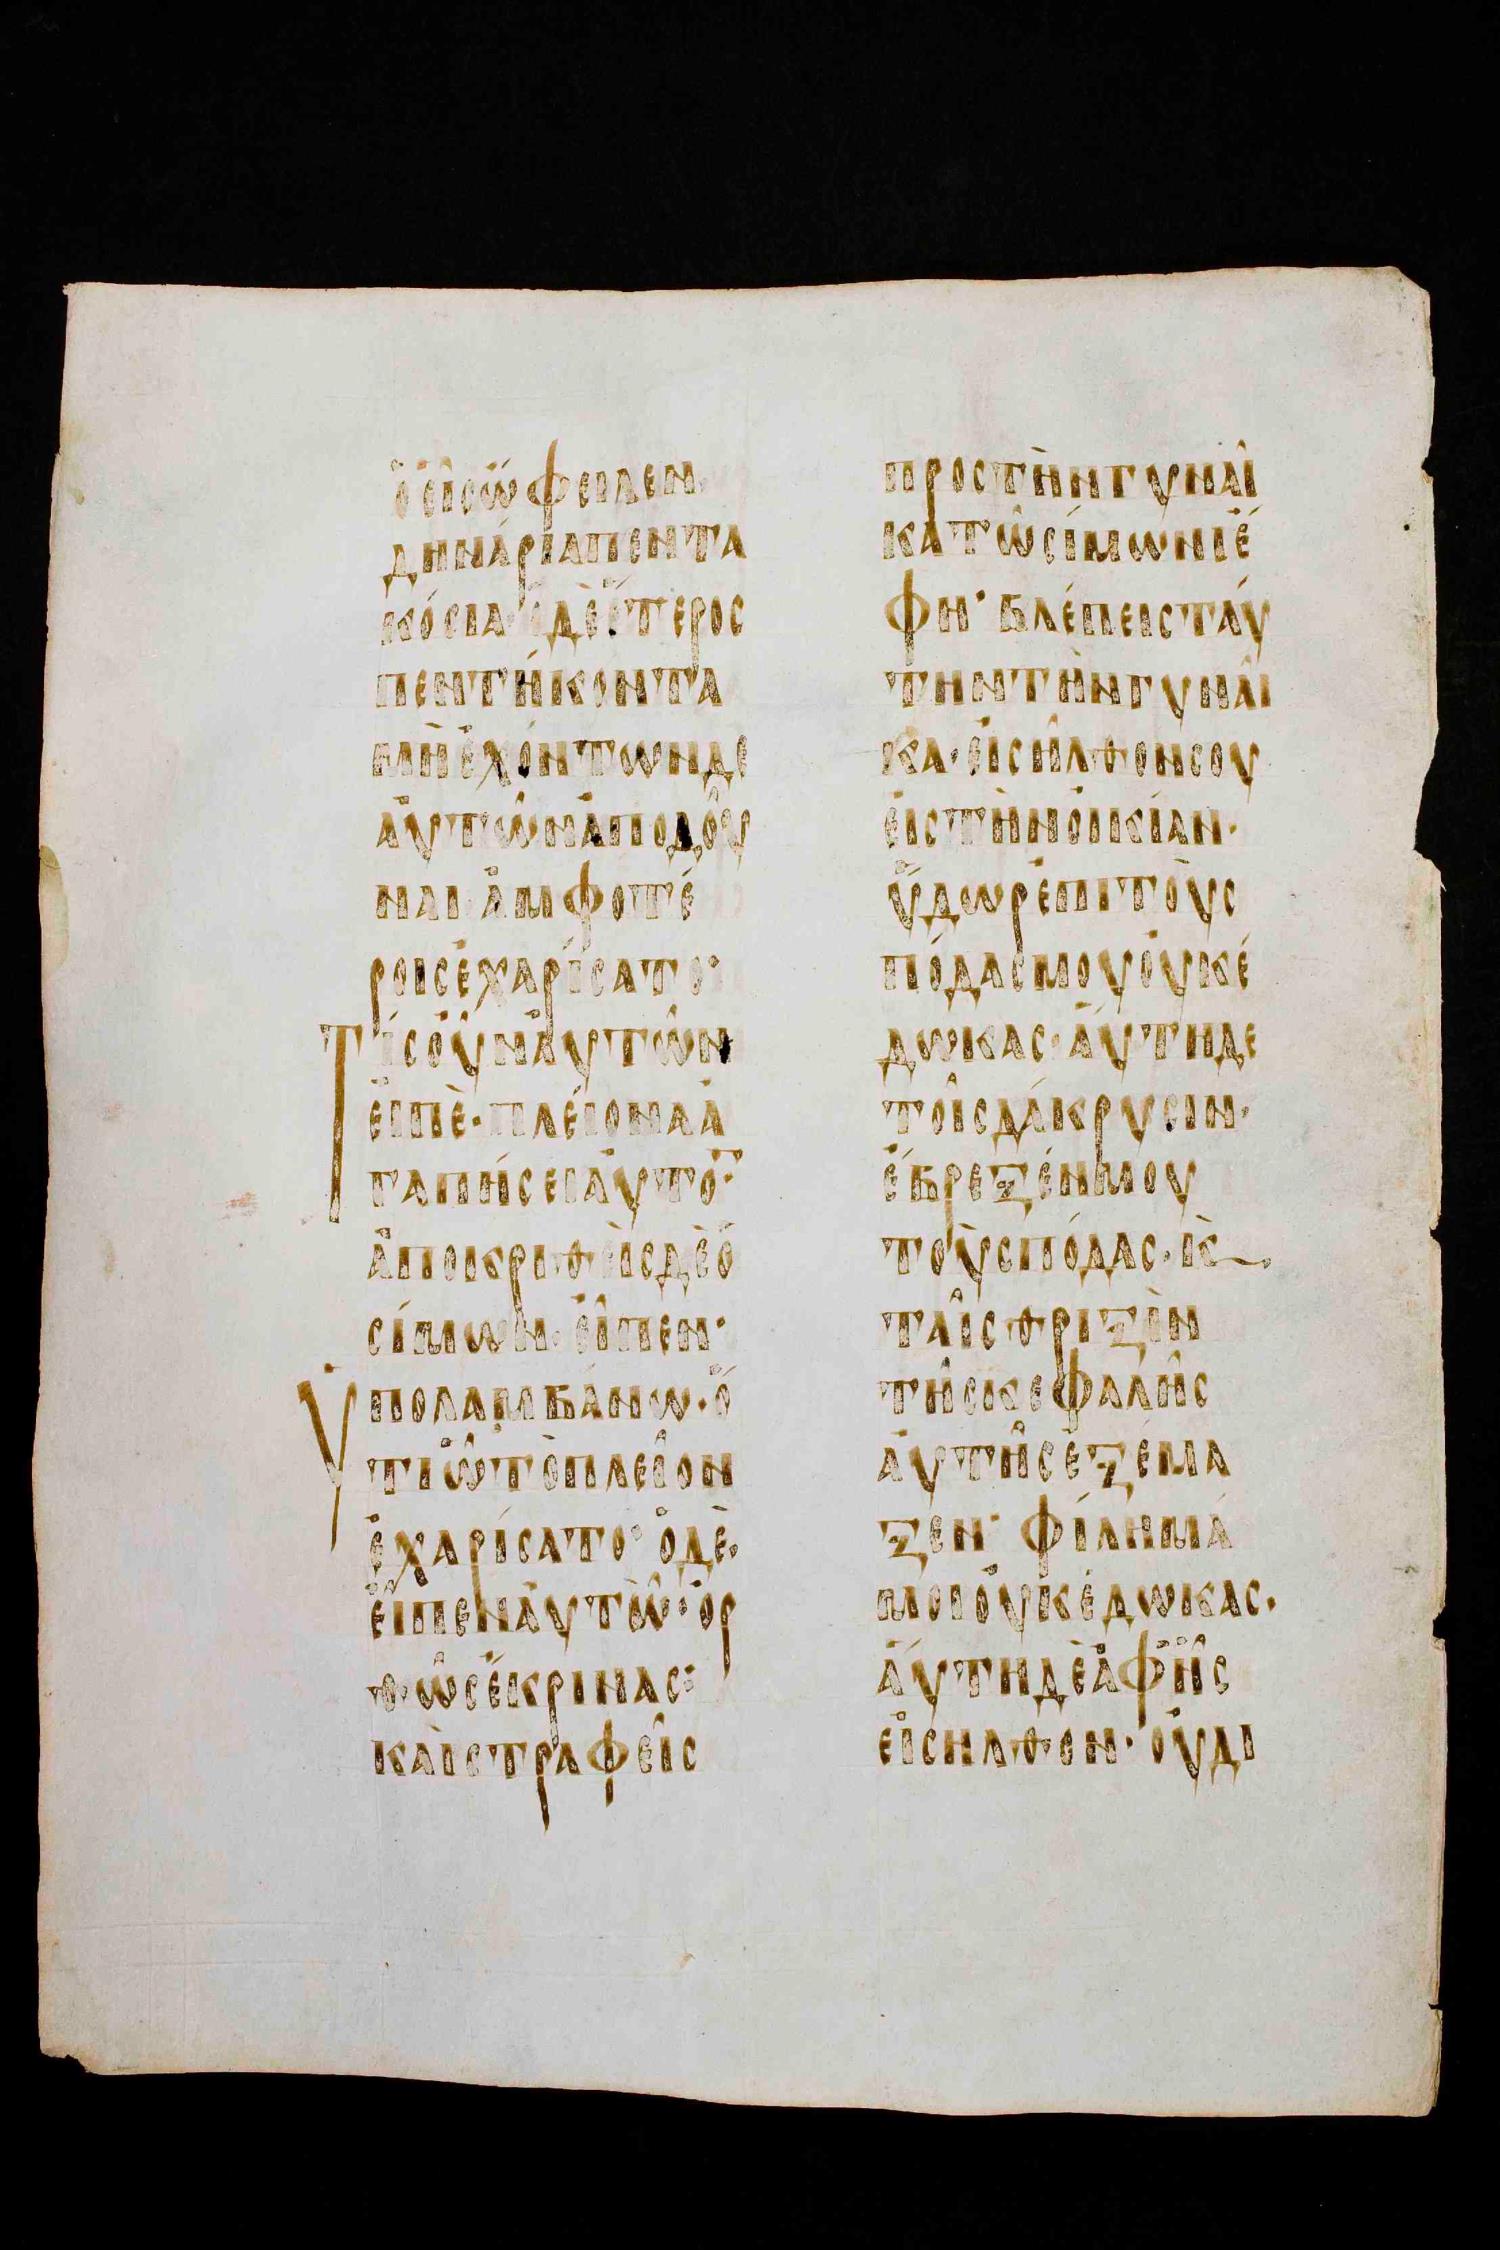 ὁ εἷς ὤφειλεν
δηνάρια πεντα
κόσια· ὁ δὲ ἕτερος
πεντήκοντα
μὴ ἐχόντων δὲ
ἀυτῶν ἀποδοῦ
ναι ἀμφοτέ
ροις ἐχαρίσατο·
Τίς οὖν ἀυτῶν
εἰπὲ· πλέιονα ἀ
γαπήσει ἀυτό̅·
ἀποκριθεὶς δὲ ὁ
σίμων· εἶπεν·
Ὑπολαμβάνω· ὅ
τι ὧ τὸ πλεῖον
ἐχαρίσατο· ὁ δὲ·
εἶπεν ἀυτῶ· ὀρ
θῶς ἔκρινας:
καὶ στραφεὶς
πρὸς τὴν γυναῖ
κα τῶ σίμωνι ἔ
φη· βλέπεις τάυ
την τὴν γυναῖ
κα· εἰσῆλθον σου
εἰς τὴν οἰκίαν·
ὕδωρ ἐπι τοὺς
πόδας μου οὐκ ἔ
δωκας· ἅυτη δε
τοῖς δάκρυσιν·
ἔβρεξέν μου
τοὺς πόδας· κ̀
ταῖς θριξὶν
τῆς κεφαλῆς
ἀυτῆς ἐξέμα
ξεν· φίλημά
μοι οὐκ ἔδωκας·
ἅυτη δὲ ἀφ ἧς
εἰσηλθον· οὐ δι